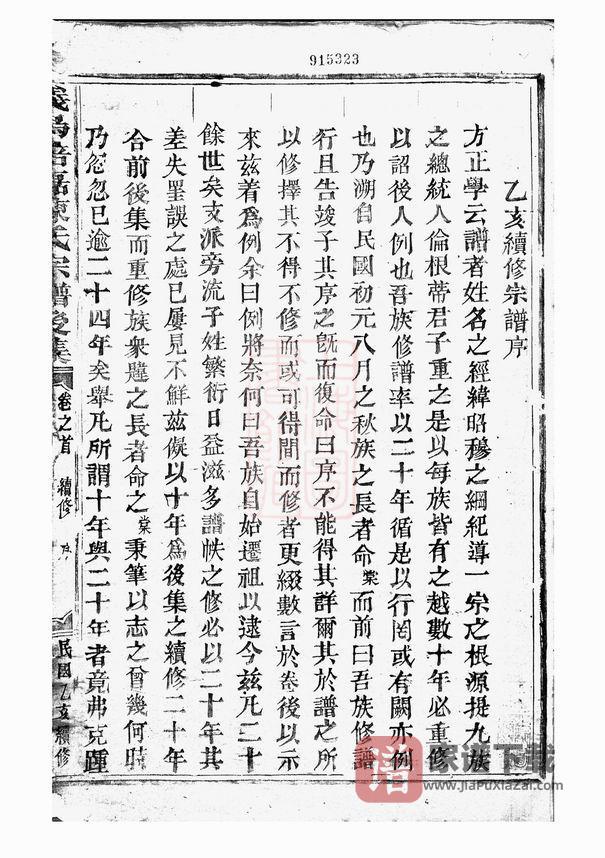 915323
乙亥續修宗譜序
方正學云譜者姓名之經緯昭穆之綱紀導一宗之根源挺九族
之總統人倫根蒂君子重之是以每族皆有之越數十年必重修
以詔後人例也吾族修譜率以二十年循是以行罔或有闕亦例
也乃溯自民國初元八月之秋族之長者命棠而前曰吾族修譜
行且告竣子其序之旣而復命曰序不能得其詳爾其於譜之所
以修擇其不得不修而或可得間而修者更綴數言於卷後以示
來茲着爲例余曰例將奈何曰吾族自始遷祖以逮今茲凡二十
餘世矣支派旁流子姓繁衍日益滋多譜帙之修必以二十年其
差失罣誤之處已屢見不鮮茲儗以十年爲後集之續修二十年
合前後集而重修族衆韙之長者命之棠秉筆以志之曾幾何時
乃忽忽已逾二十四年矣舉凡所謂十年與二十年者竟弗克踵
陳氏宗譜後集
卷之首
續修
序
民國乙亥續修
譜
家谱下载
www.JiaPuXiaZai.com